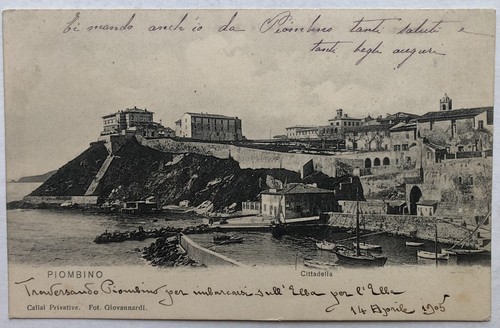 Ti mando anch'io da Piombino tanti saluti e
tanti begli auguri
PIOMBINO
Cittadella
Traversando Piombino per imbarcarsi sull'Elba per l'Elba
14 Aprile 1905
Calisi Privative. Fot. Giovannardi.